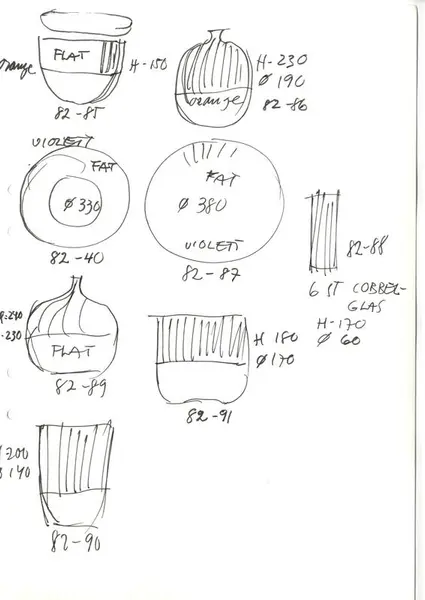 orange
FLAT
H-150
82-85
H-230
ø 190
orange
82-86
VIOLETT
FAT
ø 330
82-40
FAT
ø 380
VIOLETT
82-87
82-88
6 ST COBBEL-
GLAS
H-170
ø 60
-230
FLAT
82-89
H 180
ø 170
82-91
-200
140
82-90